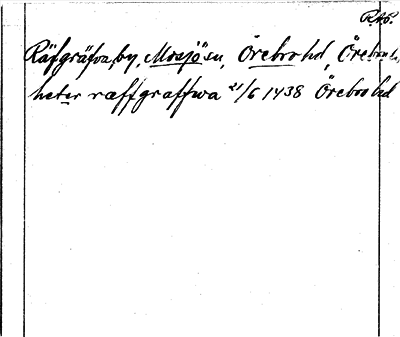 RAP.
Räfgräfva, by, Mosjö sn, Örebro hd, Örebro l.,
heter ræffgraffwa 21/6 1438 Örebro hd